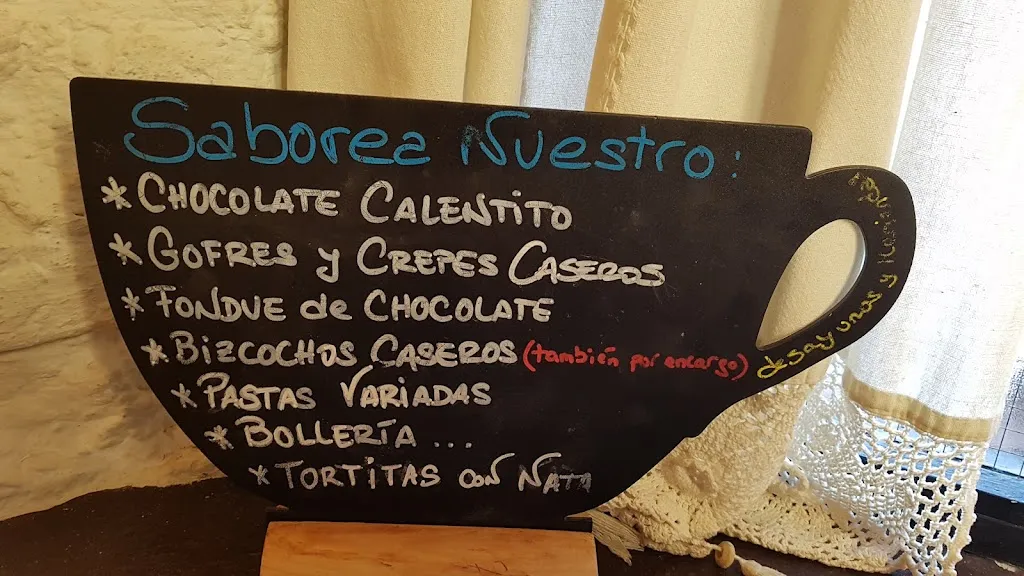 Saborea Nuestro:
* CHOCOLATE CALENTITO
* GOFRES y CREPES CASEROS
* FONDUE de CHOCOLATE
* BIZCOCHOS CASEROS (también por encargo)
* PASTAS VARIADAS
* BOLLERÍA ...
* TORTITAS CON NATA
desayunos y